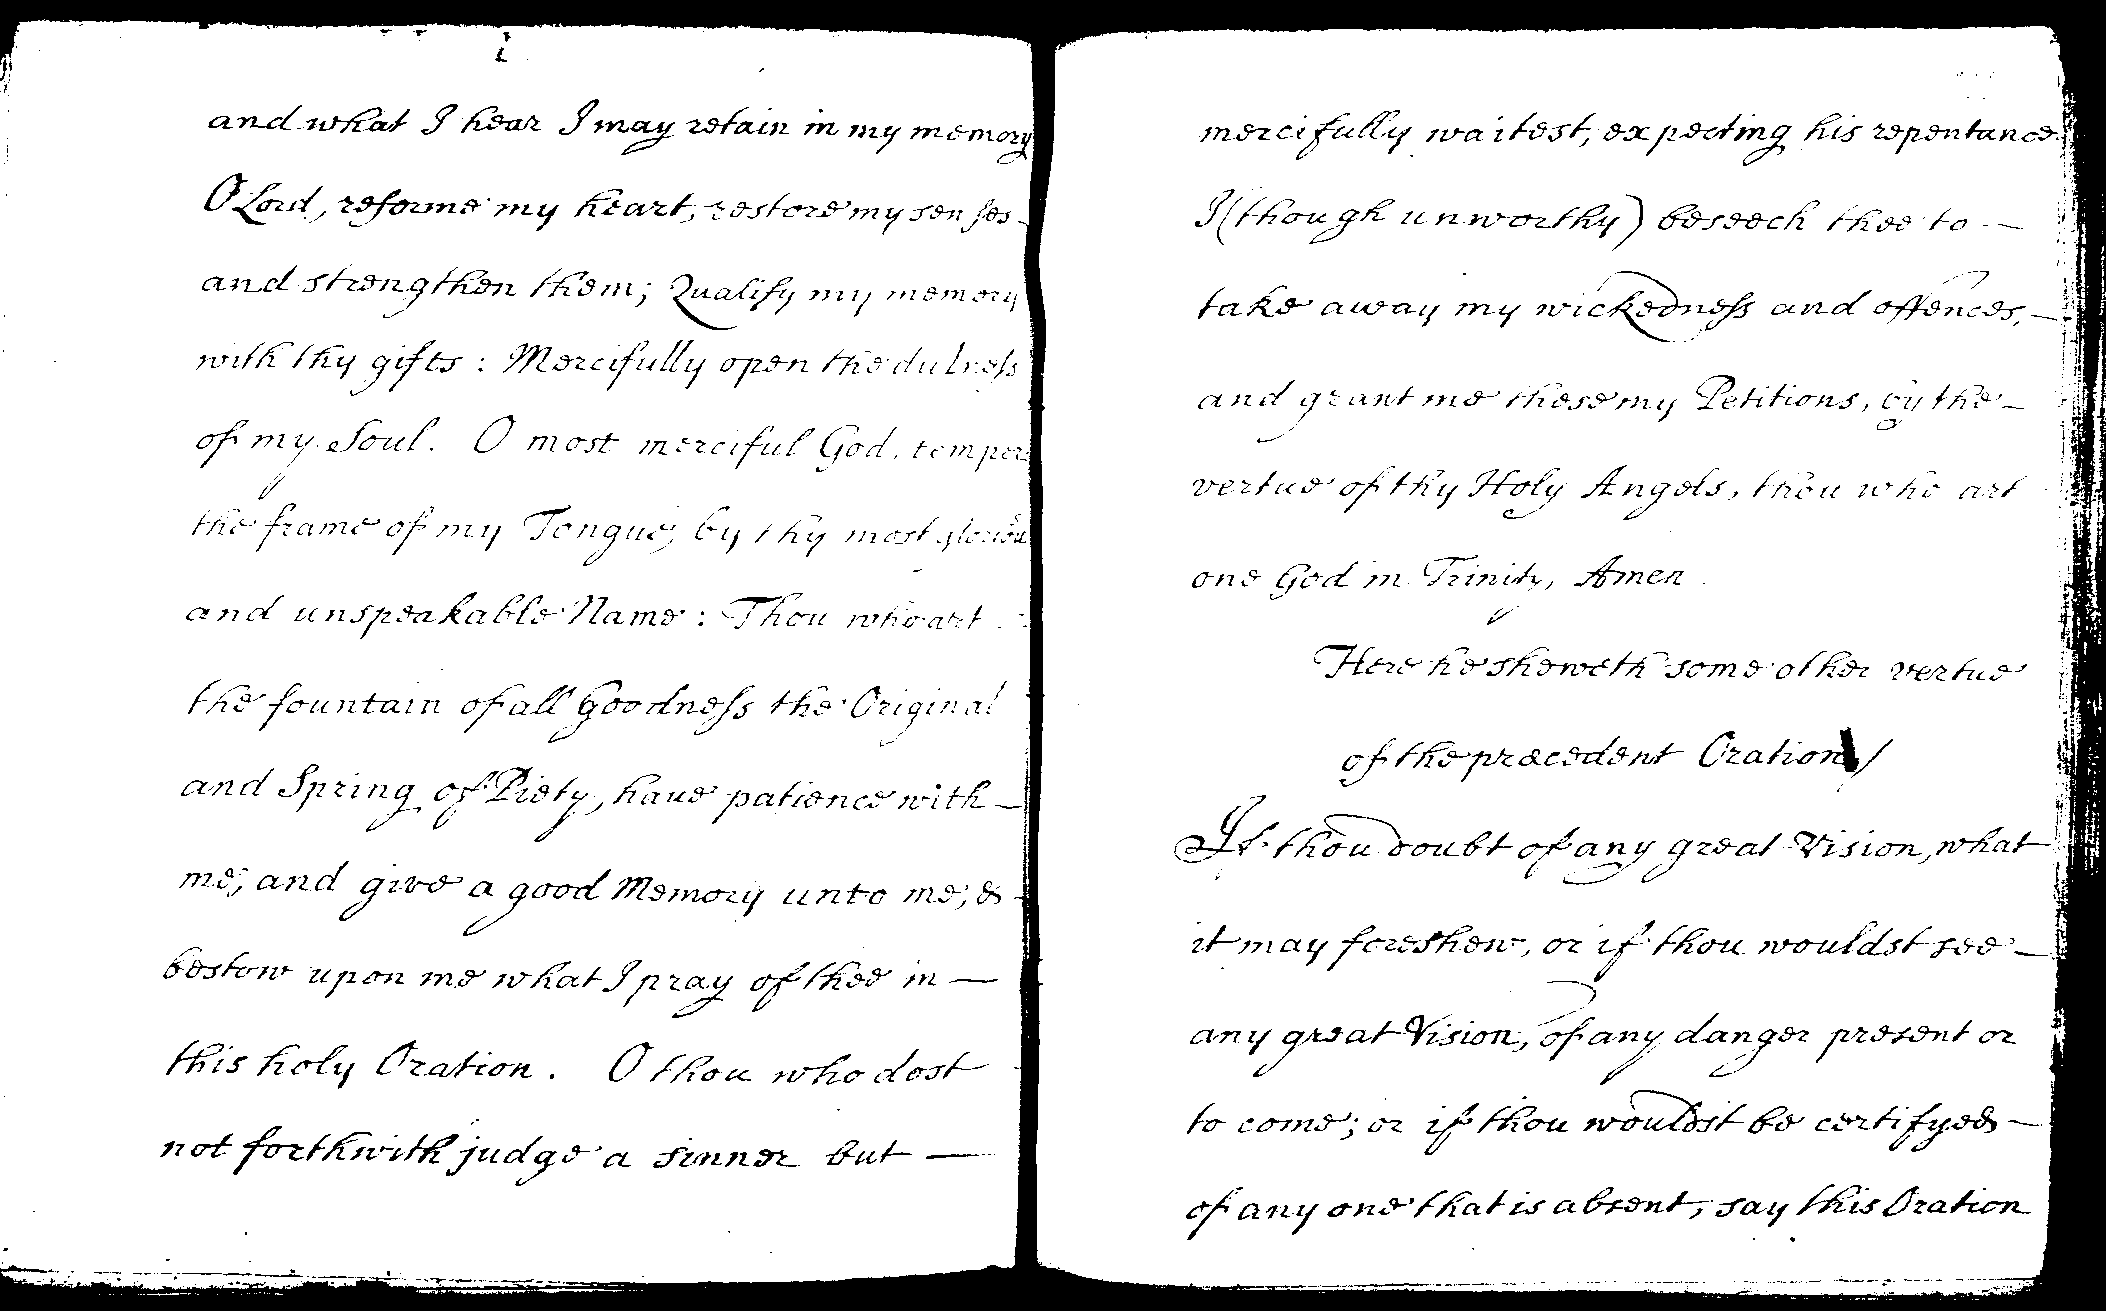 and what I hear I may retain in my memory
O Lord, reforme my heart, restore my senses -
and strengthen them; Qualify my memory
with thy gifts: Mercifully open the dulness
of my Soul. O most merciful God, temper
the frame of my Tongue, by thy most gloriou
and unspeakable Name: Thou who art
the fountain of all Goodness the Original
and Spring of Piety, haue patience with —
me; and give a good Memory unto me, &
bestow upon me what I pray of thee in —
this holy Oration. O thou who dost
not forthwith judge a sinner but —
mercifully waitest, expecting his repentance
I (though unworthy) beseech thee to —
take away my wickedness and offences, —
and grant me these my Petitions, by the —
vertue of thy Holy Angels, thou who art
one God in Trinity, Amen.
Here he sheweth some other vertue
of the præcedent Oration /
If thou doubt of any great Vision, what
it may foreshew, or if thou wouldst see —
any great Vision, of any danger present or
to come; or if thou wouldst be certifyed —
of any one that is absent, say this Oration